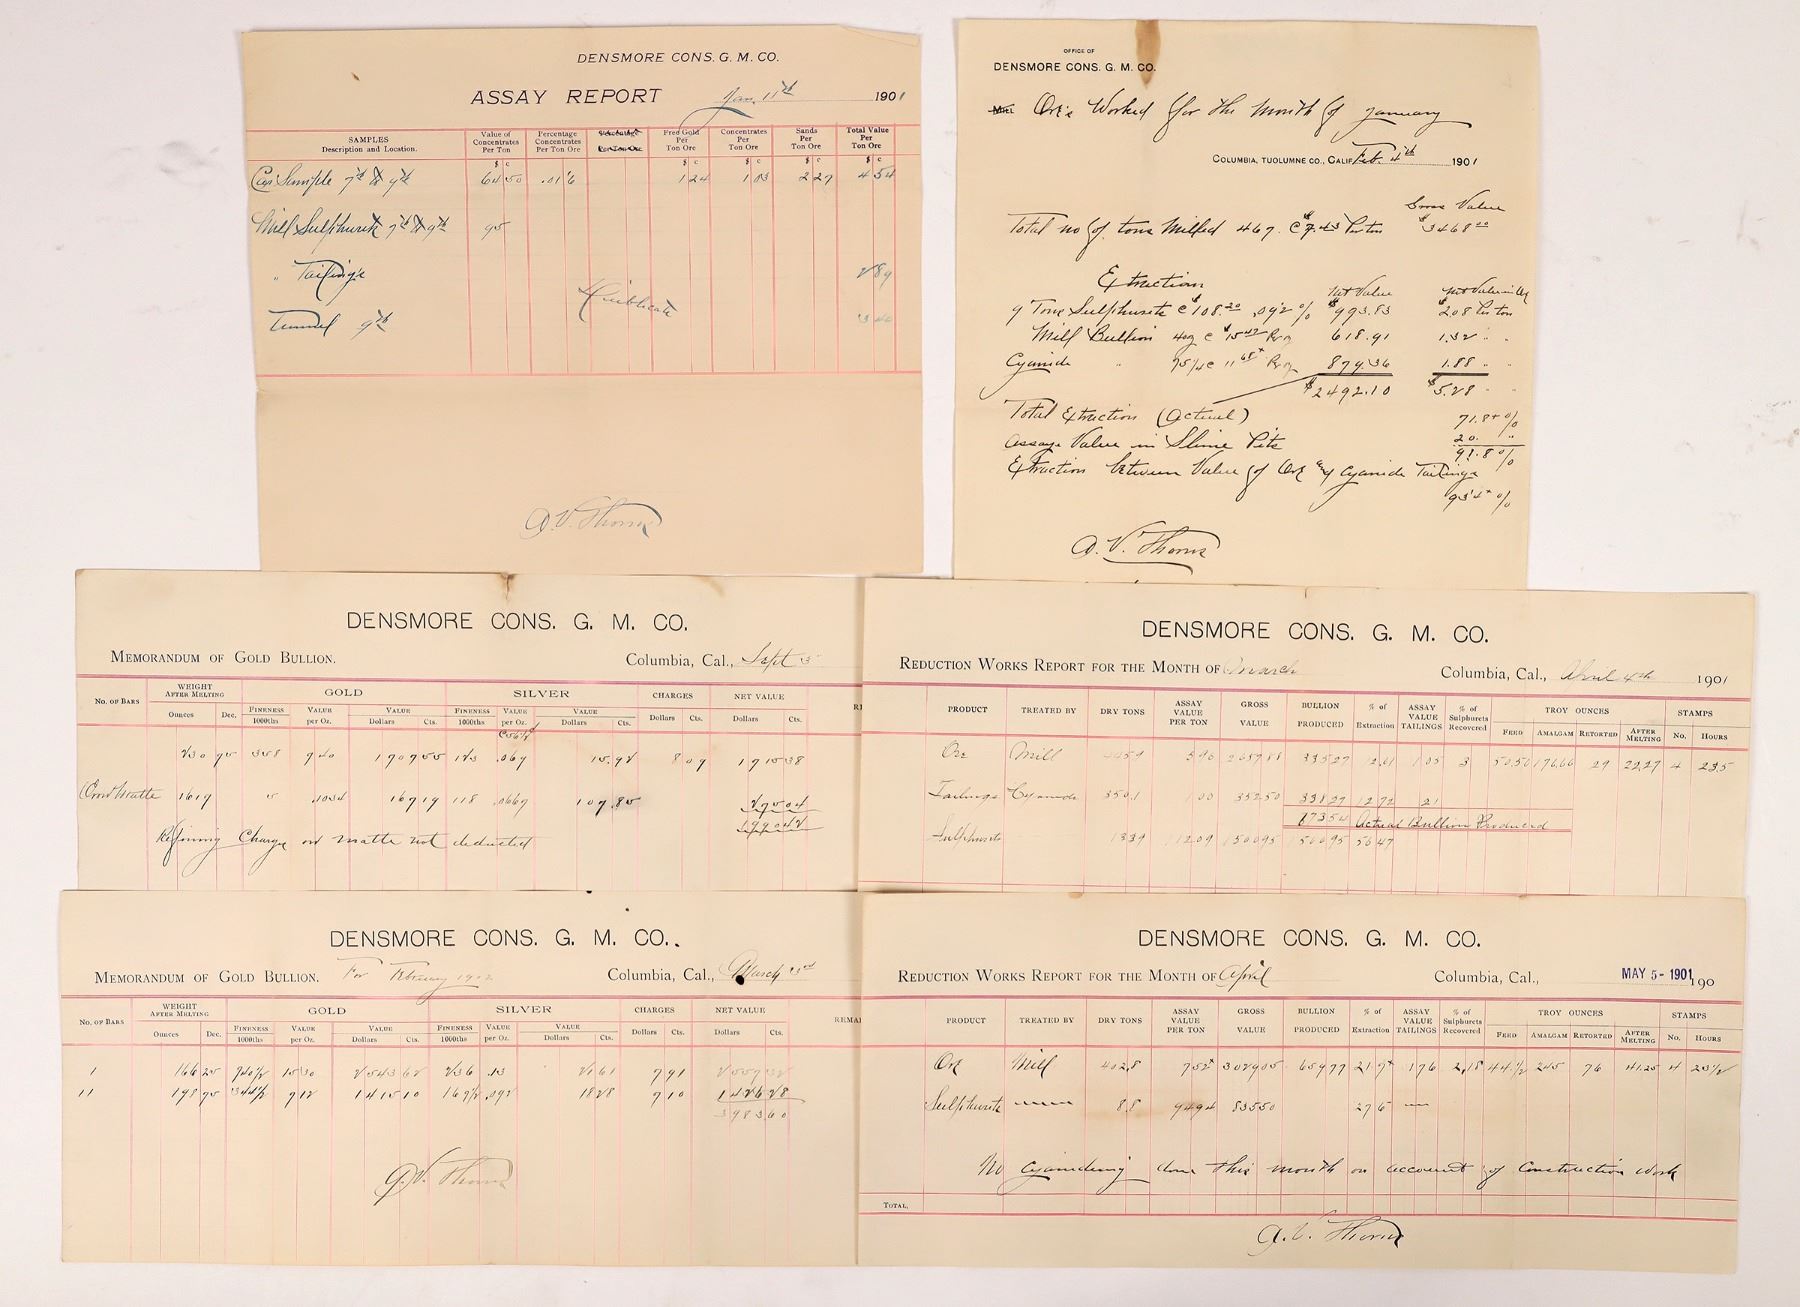 DENSMORE CONS. G. M. CO.
ASSAY REPORT Jan. 11th 1901
SAMPLES Description and Location. Value of Concentrates Per Ton Percentage Concentrates Per Ton Ore Percentage Per Ton Ore Free Gold Per Ton Ore Concentrates Per Ton Ore Sands Per Ton Ore Total Value Per Ton Ore
$ c $ c $ c $ c $ c
Car Sample 7th to 9th 64 50 .01 6 1 24 1 03 2 27 4 54
Mill Sulphurets 7th to 9th 95
" Tailings 2 89
Tunnel 9th
A. V. Thorns
OFFICE OF
DENSMORE CONS. G. M. CO.
Mill Ore's Worked for the Month of January
COLUMBIA, TUOLUMNE CO., CALIF. Feb. 4th 1901
Gross Value
Total no of tons Milled 467 @ $7.43 Per ton $3468.20
Extraction Net Value Net Value in Ore
9 Tons Sulphurets @ $108.20 .092 % $993.83 $2.08 Per ton
Mill Bullion 40 oz @ $15.47 Per oz 618.91 1.32 " "
Cyanide " 75 1/4 @ 11 68+ Per oz 879.36 1.88 " "
$2492.10 $5.28 " "
Total Extraction (Actual) 71.8+ %
Assay Value in Slime Pits 20. "
91.8 %
Extraction between Value of Ore and Cyanide Tailings
93.4+ %
A. V. Thorns
DENSMORE CONS. G. M. CO.
MEMORANDUM OF GOLD BULLION. Columbia, Cal., Sept 3
No. OF BARS WEIGHT AFTER MELTING GOLD SILVER CHARGES NET VALUE
Ounces Dec. FINENESS 1000ths VALUE per Oz. VALUE Dollars Cts. FINENESS 1000ths VALUE per Oz. VALUE Dollars Cts. Dollars Cts. Dollars Cts.
230 95 358 7 40 1709 55 123 .069 15.92 8 09 1715 38
1619 .1034 167 19 118 .0667 107.85 275 04
1990 42
Refining Charge on matte not deducted
DENSMORE CONS. G. M. CO.
REDUCTION WORKS REPORT FOR THE MONTH OF March Columbia, Cal., April 4th 1901
PRODUCT TREATED BY DRY TONS ASSAY VALUE PER TON GROSS VALUE BULLION PRODUCED % of Extraction ASSAY VALUE TAILINGS % of Sulphurets Recovered TROY OUNCES STAMPS
FEED AMALGAM RETORTED AFTER MELTING No. HOURS
Ore Mill 445 9 5 90 2659 88 335 27 12.61 1 05 3 50.50 176.66 29 22.27 4 235
Tailings Cyanide 350.1 1 00 352 50 338 27 12 72 21
173 54 Actual Bullion Produced
Sulphurets 13 39 112 09 1500 95 1500 95 56 47
DENSMORE CONS. G. M. CO.
MEMORANDUM OF GOLD BULLION. For February 1902 Columbia, Cal., March 3rd
No. OF BARS WEIGHT AFTER MELTING GOLD SILVER CHARGES NET VALUE REMA
Ounces Dec. FINENESS 1000ths VALUE per Oz. VALUE Dollars Cts. FINENESS 1000ths VALUE per Oz. VALUE Dollars Cts. Dollars Cts. Dollars Cts.
1 166 25 740 1/2 15 30 2543 62 236 .13 21 61 7 91 2557 32
11 198 75 344 1/2 7 12 1415 10 169 1/2 .092 18 28 7 10 1426 28
3983 60
A. V. Thorns
DENSMORE CONS. G. M. CO.
REDUCTION WORKS REPORT FOR THE MONTH OF April Columbia, Cal., MAY 5-1901 190
PRODUCT TREATED BY DRY TONS ASSAY VALUE PER TON GROSS VALUE BULLION PRODUCED % of Extraction ASSAY VALUE TAILINGS % of Sulphurets Recovered TROY OUNCES STAMPS
FEED AMALGAM RETORTED AFTER MELTING No. HOURS
Ore Mill 402.8 7 52+ 3029 05 659 77 21.7+ 1 76 2.18 44 1/2 245 76 41.25 4 23 1/2
Sulphurets 8 8 94 94 835 50 27 6
No cyaniding done this month on account of Construction work
TOTAL,
A. V. Thorns